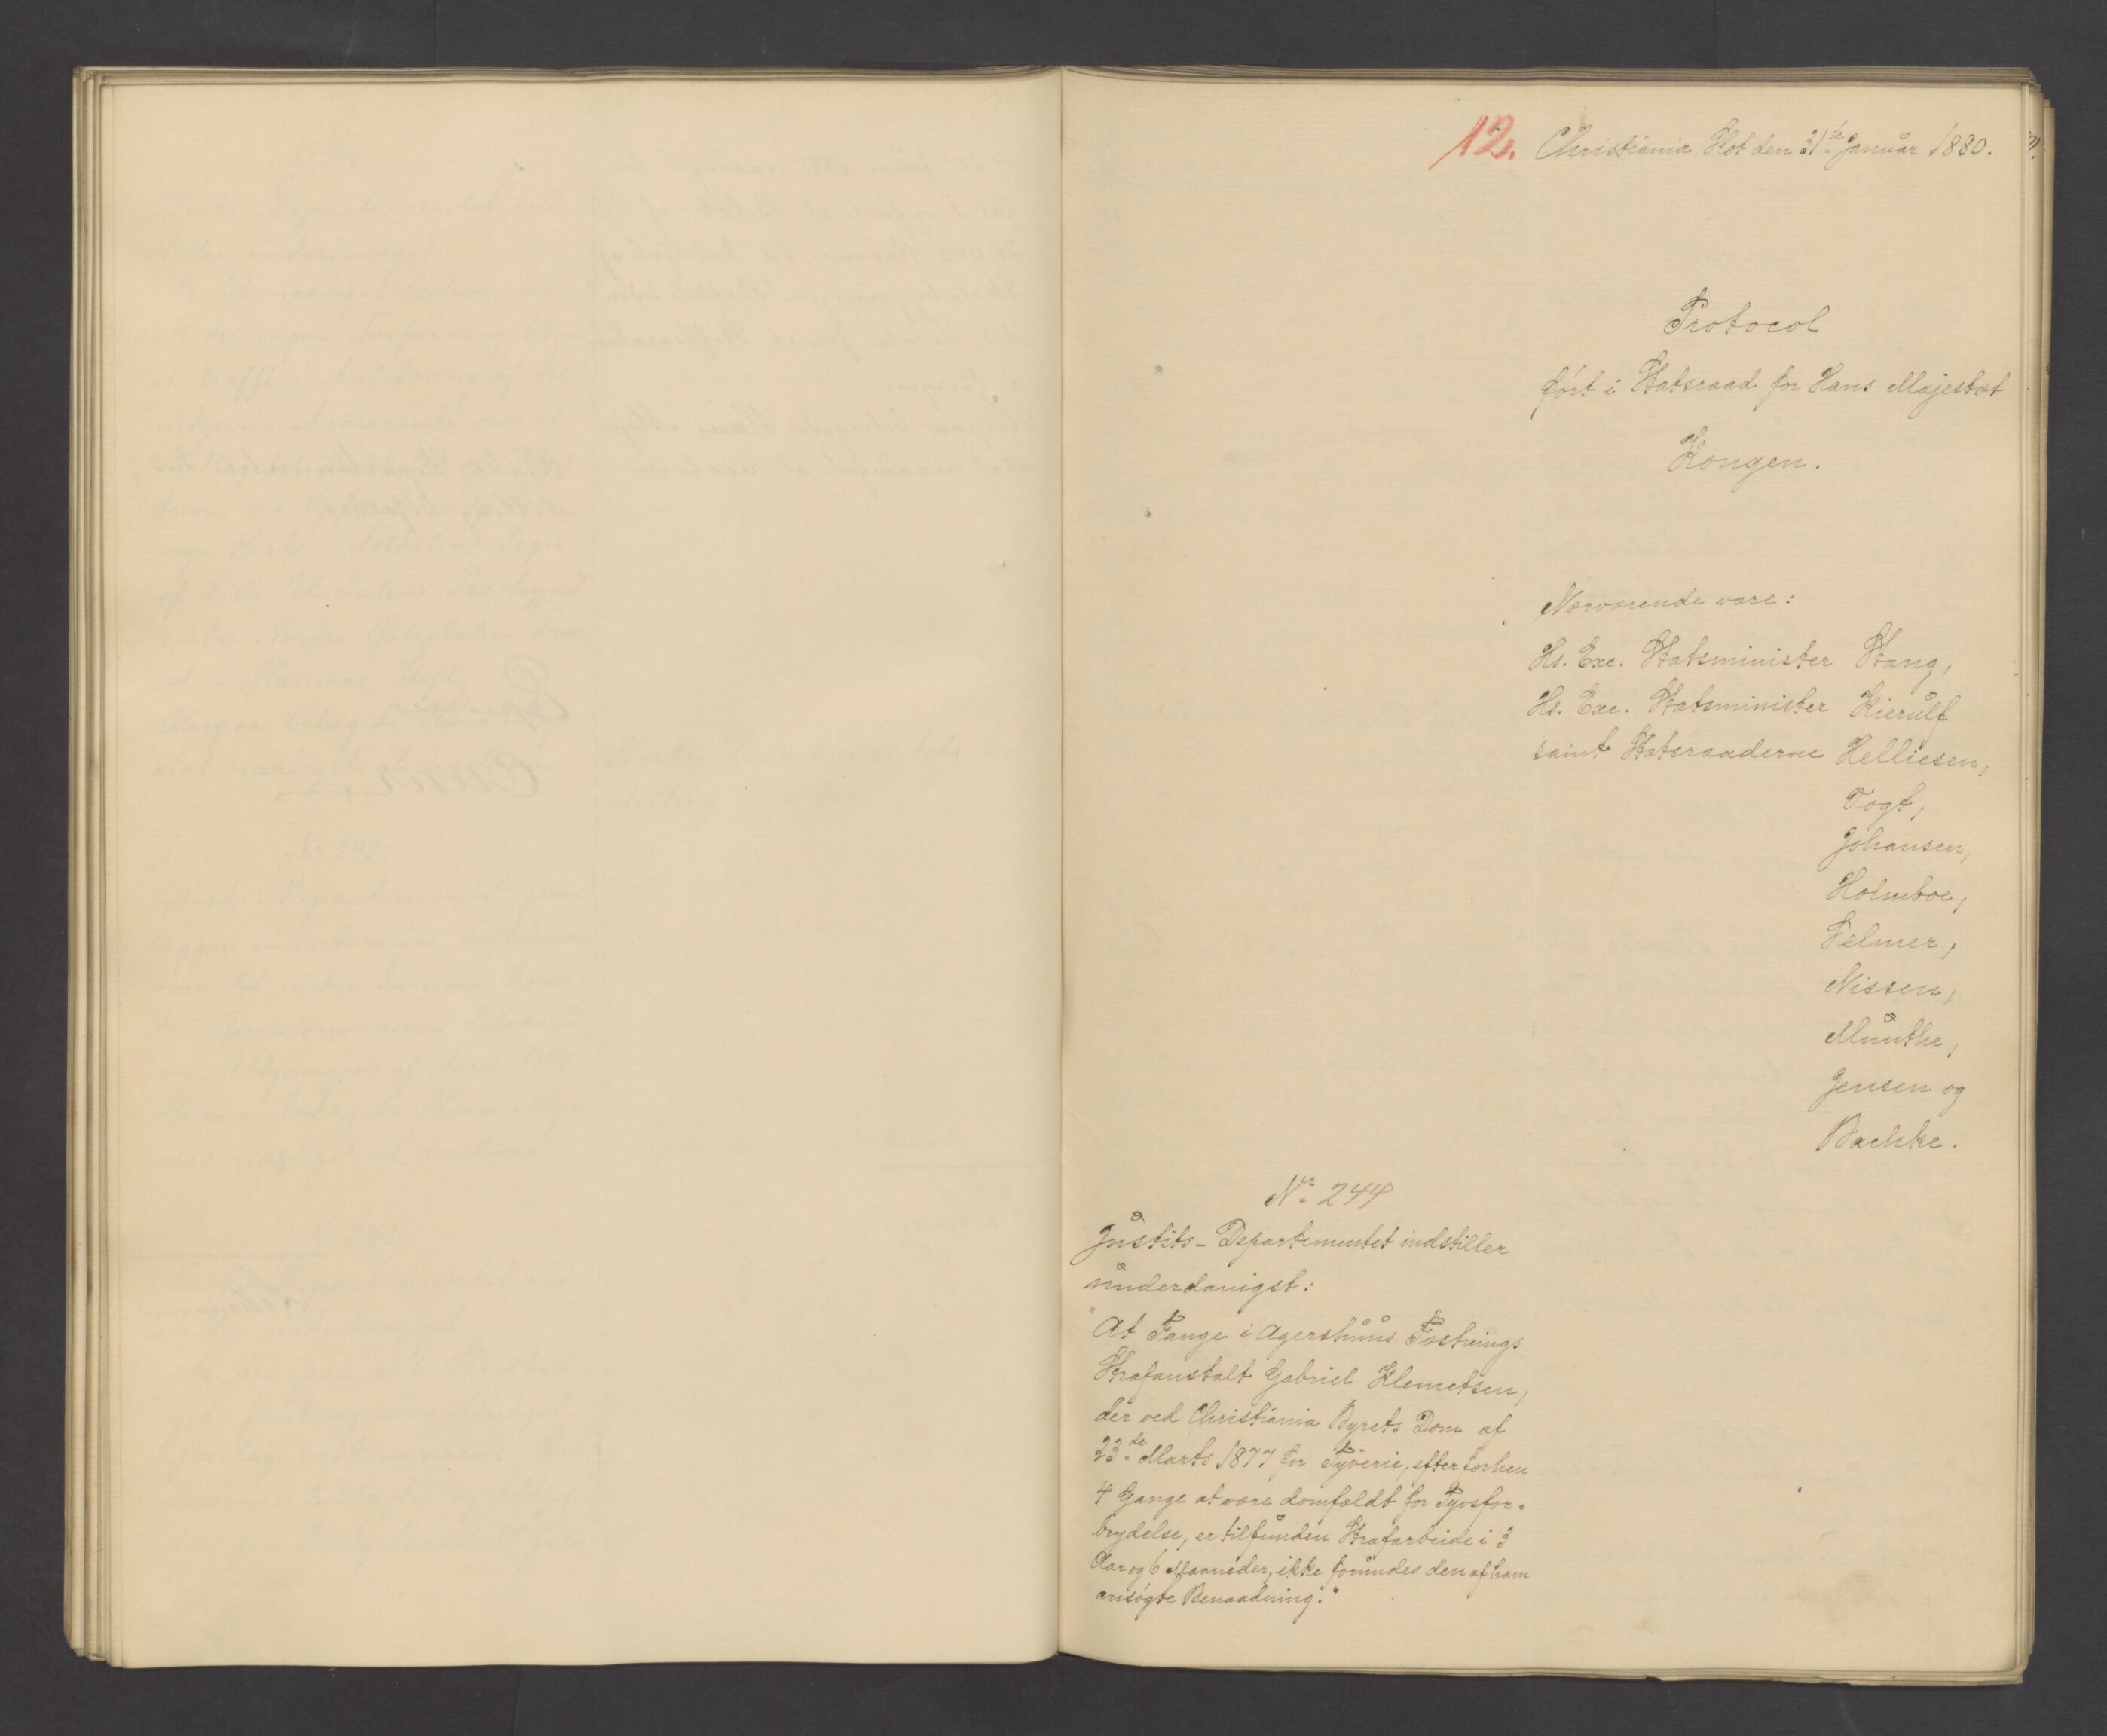 12. Christiania Slot den 31te Januar 1880.
Protocol
ført i Statsraad for Hans Majestæt
Kongen.
Nærværende vare:
Hs. Exc. Statsminister Stang,
Hs. Exc. Statsminister Kierulf
samt Statsraaderne Helliesen,
Vogt,
Johansen,
Holmboe,
Selmer,
Nissen,
Munthe,
Jensen og
Bachke.
No. 244.
Justits-Departementet indstiller
underdanigst:
"At Fange i Agershuus Fæstnings
Strafanstalt Gabriel Klemetsen,
der ved Christiania Byrets Dom af
23de Marts 1877 for Tyverie, efter forhen
4 Gange at være domfældt for Tyvsfor-
brydelse, er tilfunden Strafarbeide i 3
Aar og 6 Maaneder, ikke forundes den af ham
ansøgte Benaadning."